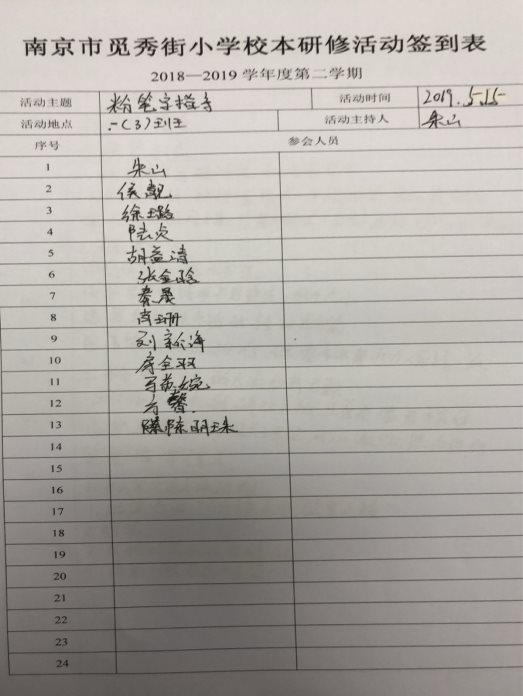 南京市觅秀街小学校本研修活动签到表
2018—2019 学年度第二学期
活动主题 粉笔字指导 活动时间 2019.5.15
活动地点 一(3)班 活动主持人 朱山
序号 参会人员
1 朱山
2 侯靓
3 徐璐
4 陆炎
5 胡益清
6 张金晗
7 秦晨
8 尚珊
9 刘新海
10 房全双
11 婉
12 方馨
13 陈明珠
14
15
16
17
18
19
20
21
22
23
24